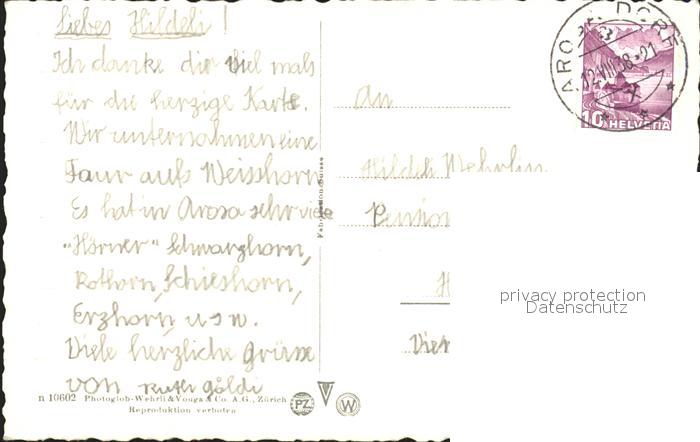 Liebes Hildeli!
Ich danke dir viel mals
für die herzige Karte.
Wir unternahmen eine
Taur aufs Weisshorn
Es hat in Arosa sehr viele
"Hörner" Schwarzhorn,
Rothorn, Schieshorn,
Erzhorn, u s w.
Viele herzliche Grüsse
von Ruth Göldi
n 10602 Photoglob-Wehrli & Vouga & Co. A.G., Zürich
Reproduktion verboten
PZ
V
W
An
Hildeli
Pension
AROSA DORF
12.VIII.38-21
10 HELVETIA
privacy protection
Datenschutz